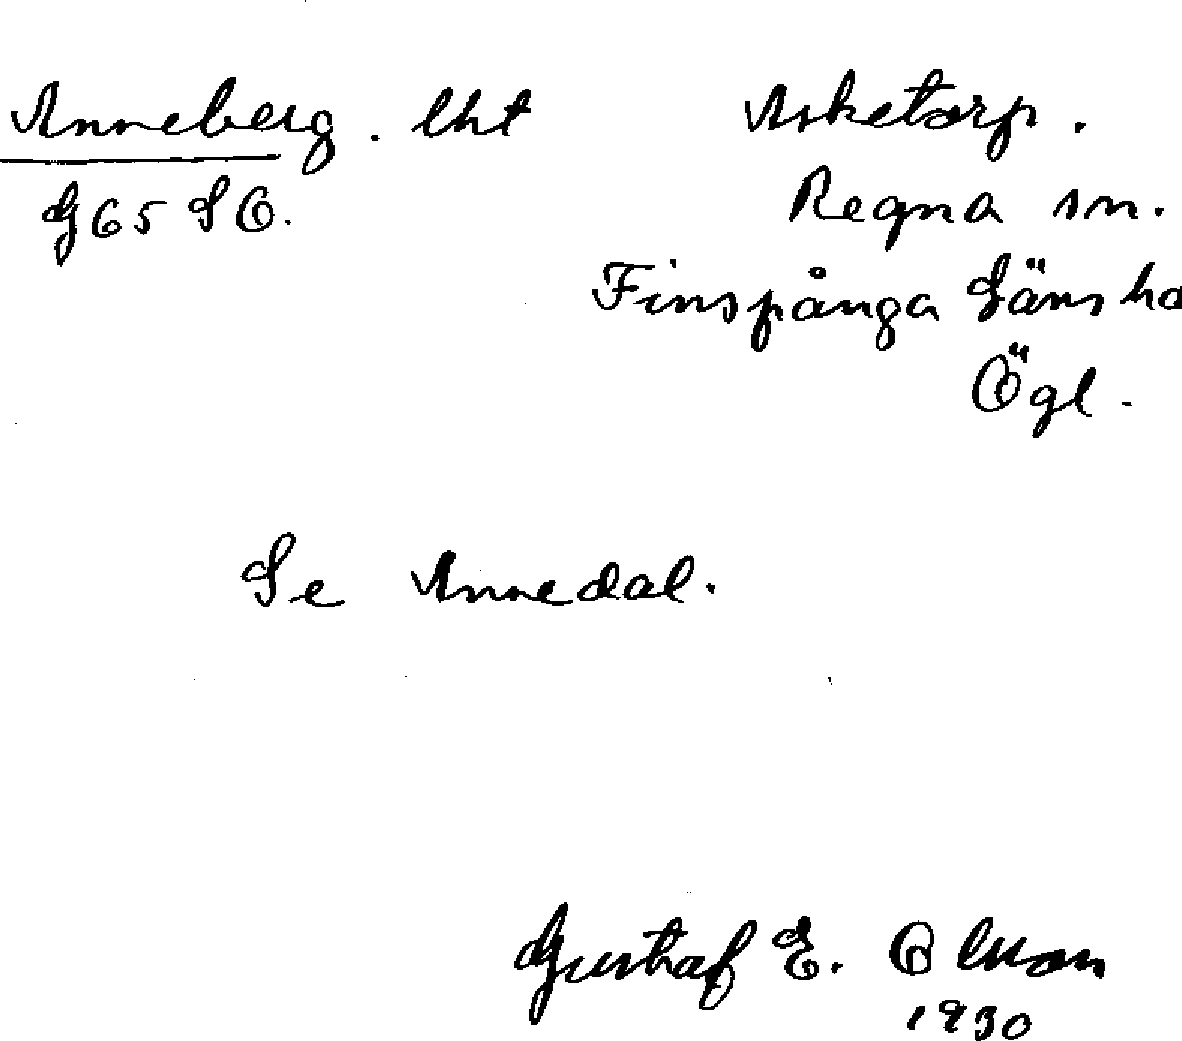 Anneberg. lht Asketorp.
G65 SO. Regna sn.
Finspånga Läns ha
Ögl.
Se Annedal.
Gustaf E. Olsson
1930